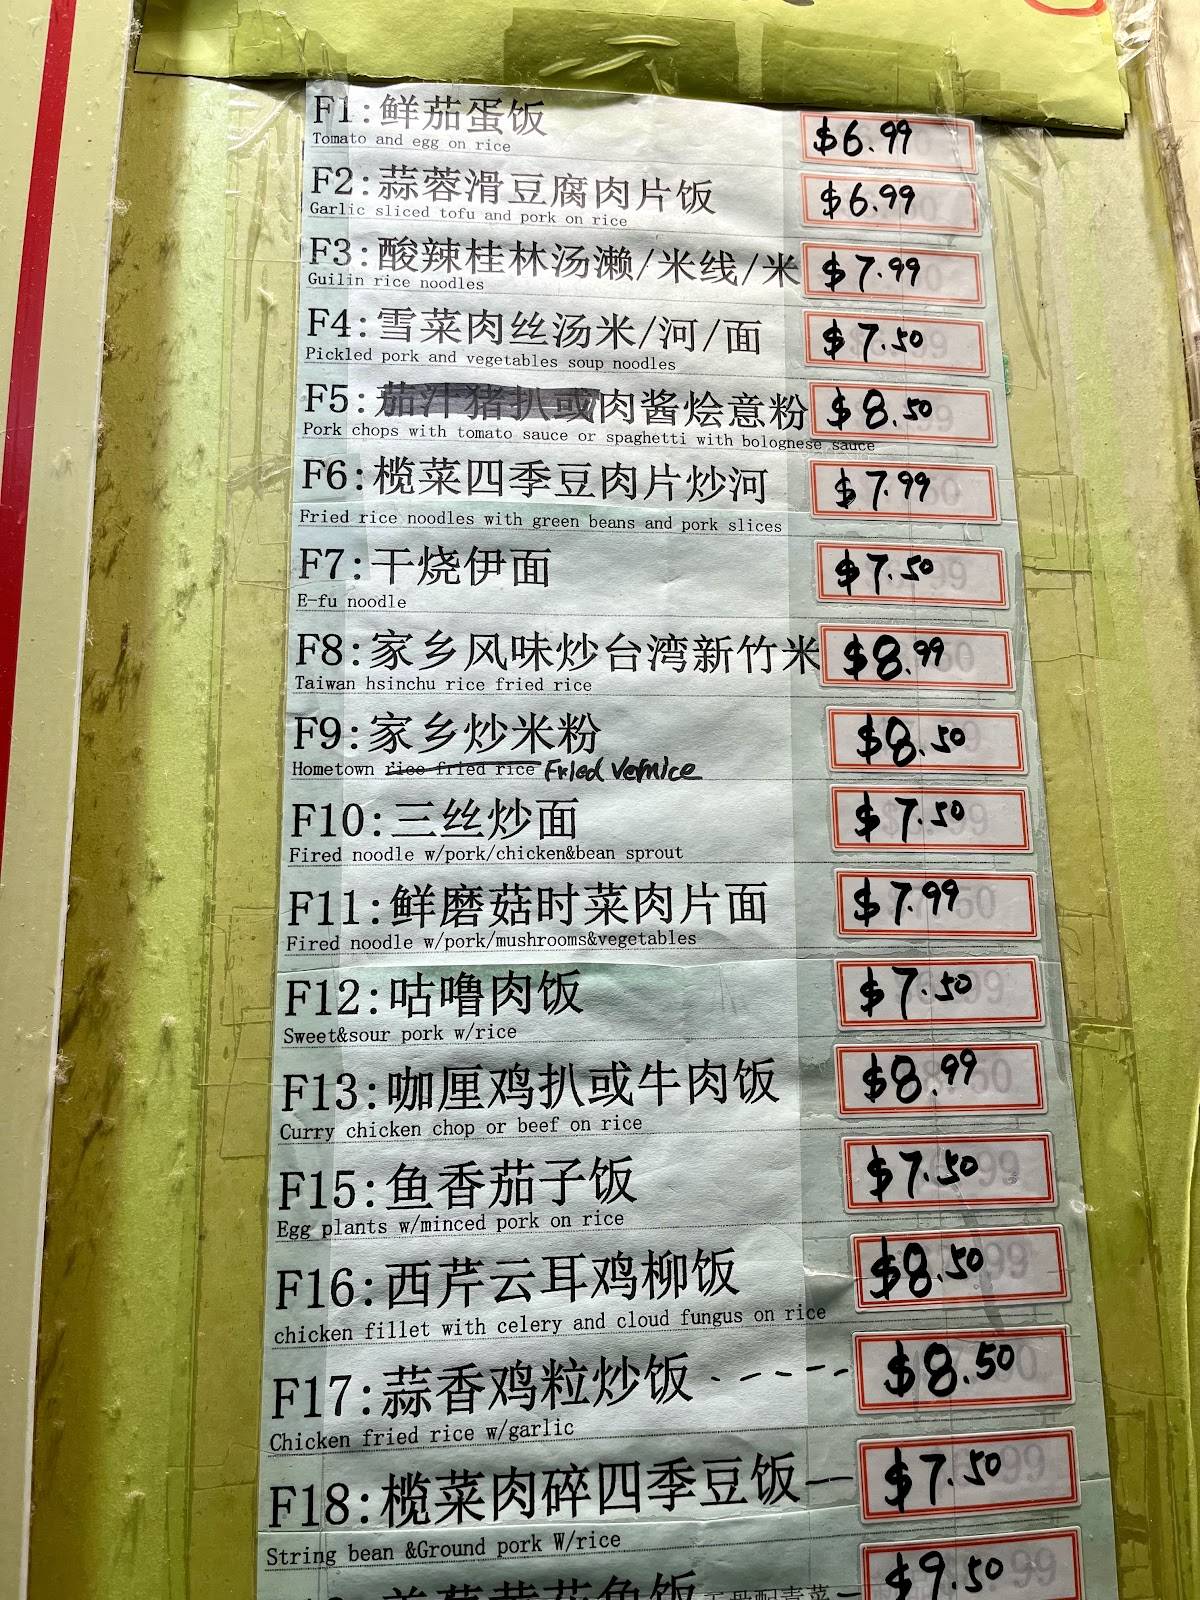 F1:鲜茄蛋饭 $6.99
Tomato and egg on rice
F2:蒜蓉滑豆腐肉片饭 $6.99
Garlic sliced tofu and pork on rice
F3:酸辣桂林汤濑/米线/米 $7.99
Guilin rice noodles
F4:雪菜肉丝汤米/河/面 $7.50
Pickled pork and vegetables soup noodles
F5:茄汁猪扒或肉酱烩意粉 $8.50
Pork chops with tomato sauce or spaghetti with bolognese sauce
F6:榄菜四季豆肉片炒河 $7.99
Fried rice noodles with green beans and pork slices
F7:干烧伊面 $7.50
E-fu noodle
F8:家乡风味炒台湾新竹米 $8.99
Taiwan hsinchu rice fried rice
F9:家乡炒米粉 $8.50
Hometown rice fried rice Fried Vermice
F10:三丝炒面 $7.50
Fired noodle w/pork/chicken&bean sprout
F11:鲜磨菇时菜肉片面 $7.99
Fired noodle w/pork/mushrooms&vegetables
F12:咕噜肉饭 $7.50
Sweet&sour pork w/rice
F13:咖厘鸡扒或牛肉饭 $8.99
Curry chicken chop or beef on rice
F15:鱼香茄子饭 $7.50
Egg plants w/minced pork on rice
F16:西芹云耳鸡柳饭 $8.50
chicken fillet with celery and cloud fungus on rice
F17:蒜香鸡粒炒饭 $8.50
Chicken fried rice w/garlic
F18:榄菜肉碎四季豆饭 $7.50
String bean &Ground pork W/rice
$9.50